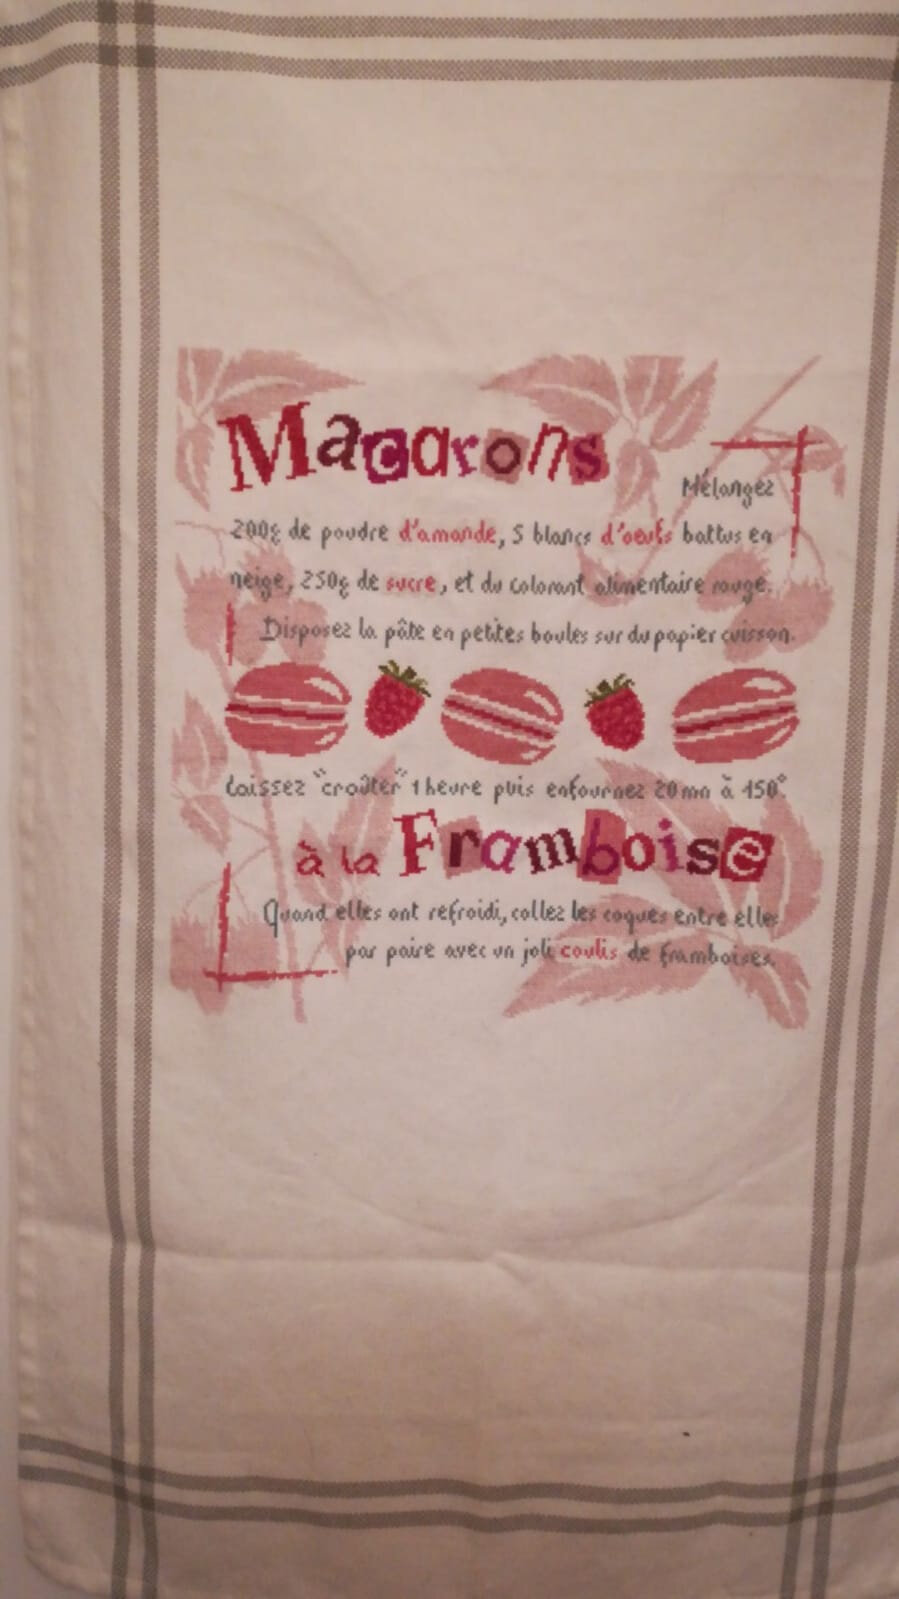 Macarons
Mélangez
200g de poudre d'amande, 5 blancs d'oeufs battus en
neige, 250g de sucre, et du colorant alimentaire rouge.
Disposez la pâte en petites boules sur du papier cuisson.
Laissez "croûter" 1 heure puis enfournez 20 mn à 150°
à la Framboise
Quand elles ont refroidi, collez les coques entre elles
par paire avec un joli coulis de framboises.